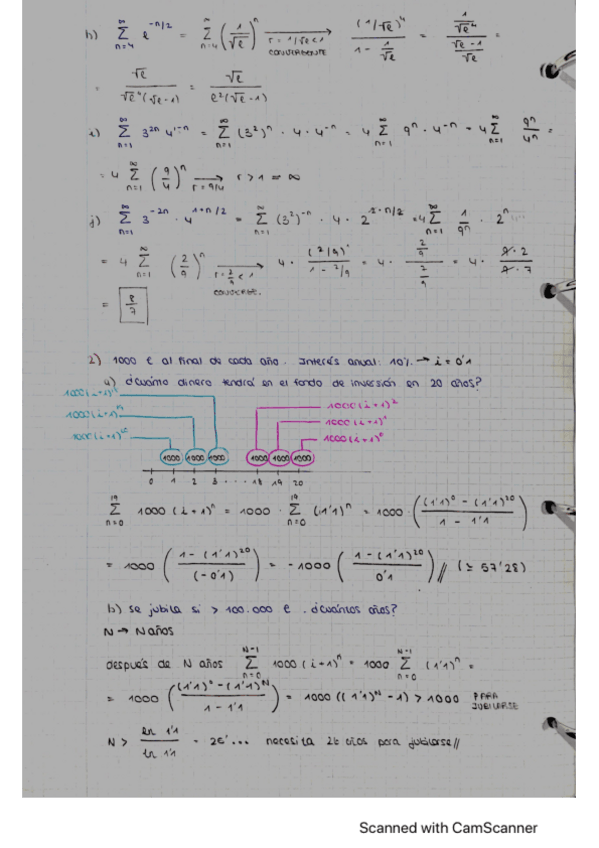 h) ∞Σn=4 e^(-n/2) = ∞Σn=4 (1/√e)^n → r = 1/√e < 1 CONVERGENTE (1/√e)^4 / (1 - 1/√e) = (1/√e^4) / ((√e - 1)/√e) =
= √e / (√e^4 (√e - 1)) = √e / (e^2 (√e - 1))
i) ∞Σn=1 3^(2n) 4^(1-n) = ∞Σn=1 (3^2)^n · 4 · 4^(-n) = 4 ∞Σn=1 9^n · 4^(-n) = 4 ∞Σn=1 9^n/4^n =
= 4 ∞Σn=1 (9/4)^n → r = 9/4 r > 1 = ∞
j) ∞Σn=1 3^(-2n) · 4^(1+n/2) = ∞Σn=1 (3^2)^(-n) · 4 · = 4 ∞Σn=1 1/9^n · 2^n
= 4 ∞Σn=1 (2/9)^n → r = 2/9 < 1 CONVERGE. 4 · (2/9)^1 / (1 - 2/9) = 4 · = 4 · 9·2 / 9·7
= 8/7
2) 1000 € al final de cada año. Interés anual: 10% → i = 0'1
a) ¿cuánto dinero tendrá en el fondo de inversión en 20 años?
1000(i+1)^2
1000(i+1)^1
1000(i+1)^0
1000 1000 1000 1000 1000 1000
0 1 2 3 .... 18 19 20
19Σn=0 1000 (i+1)^n = 1000 · 19Σn=0 (1'1)^n = 1000 · ((1'1)^0 - (1'1)^20 / 1 - 1'1)
= 1000 (1 - (1'1)^20 / (-0'1)) = -1000 (1 - (1'1)^20 / 0'1) // (≃ 57'28)
b) se jubila si > 100.000 € . ¿cuántos años?
N → N años
después de N años N-1Σn=0 1000 (i+1)^n = 1000 N-1Σn=0 (1'1)^n =
= 1000 ((1'1)^0 - (1'1)^N / 1 - 1'1) = 1000 ((1'1)^N - 1) > 1000 PARA JUBILARSE
N > = 26'... necesita 26 años para jubilarse //
Scanned with CamScanner